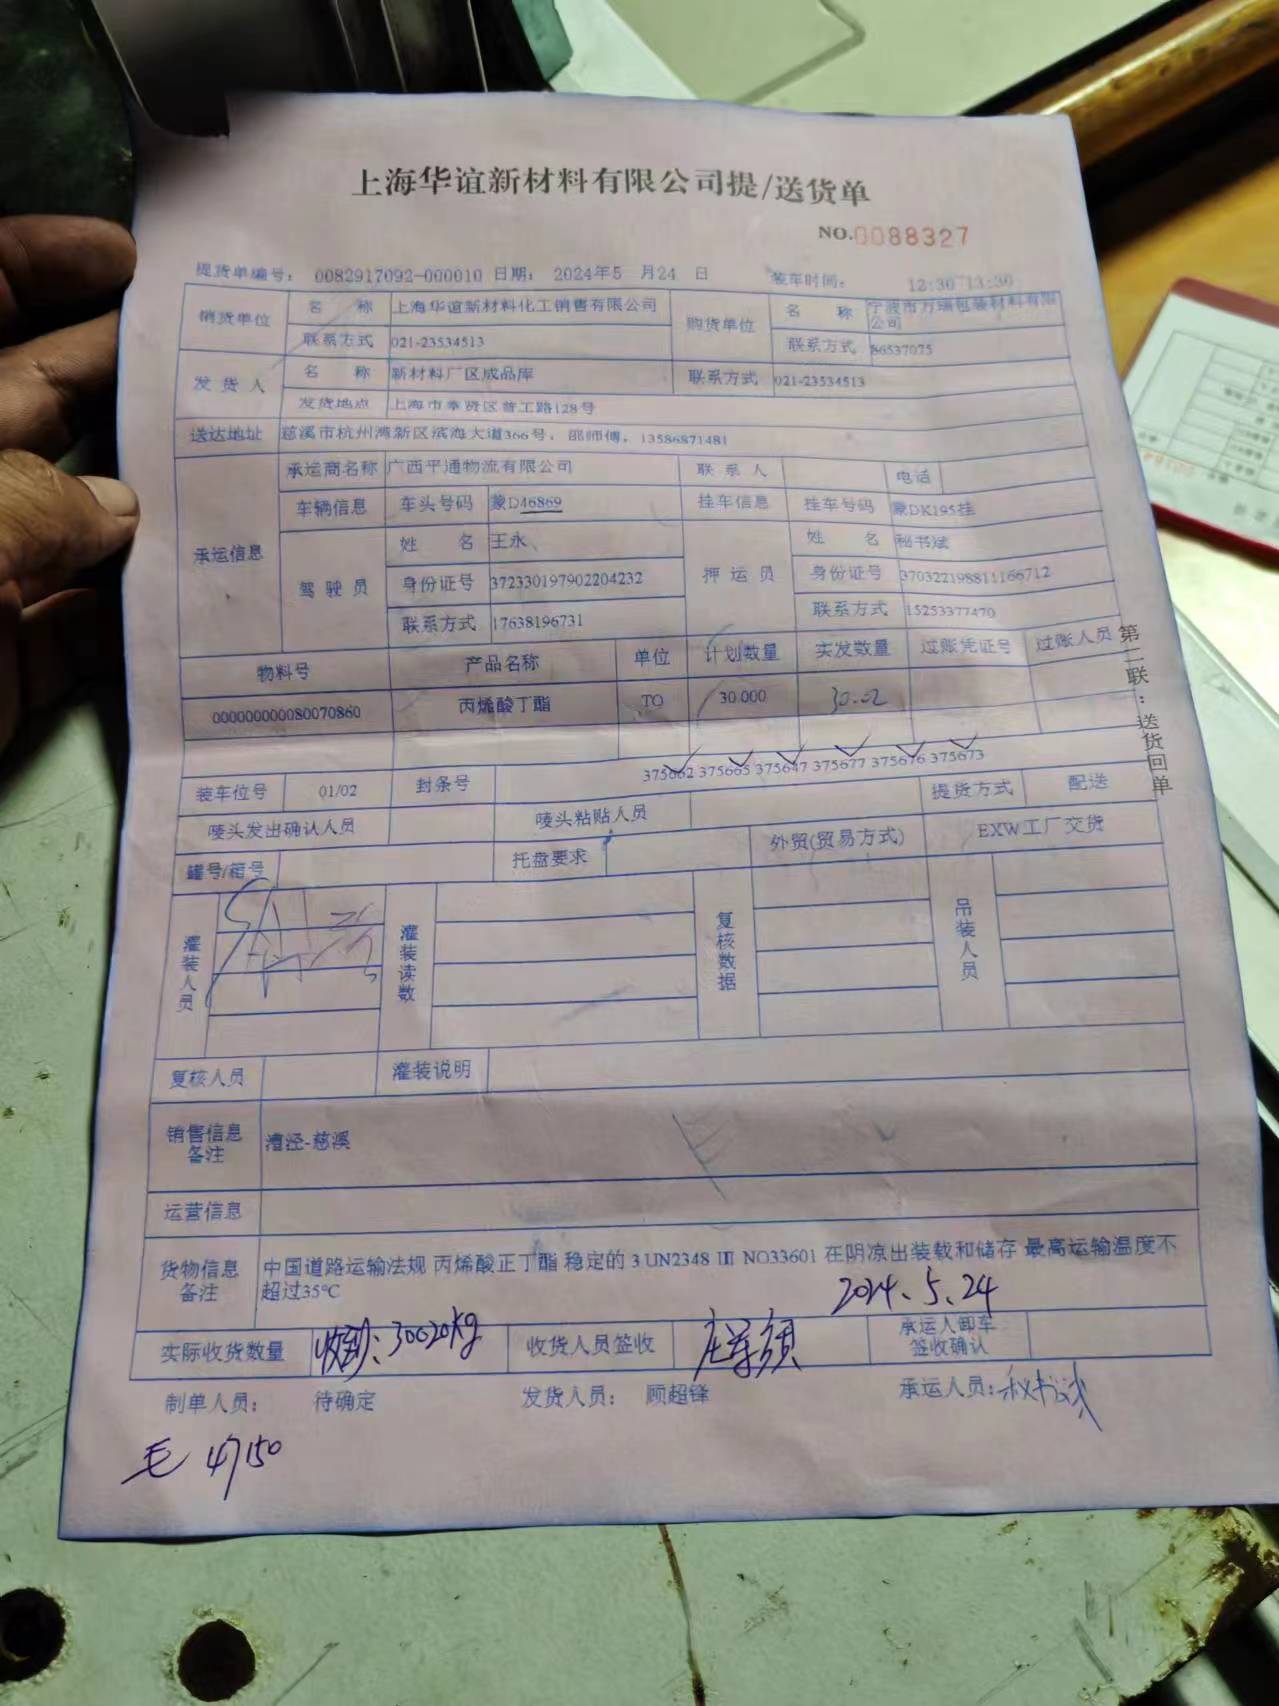 上海华谊新材料有限公司提/送货单
NO.0088327
提货单编号： 0082917092-000010 日期： 2024年5 月24 日 装车时间： 12:30 13:30
销货单位 名 称 上海华谊新材料化工销售有限公司 购货单位 名 称 宁波市万瑞包装材料有限公司
联系方式 021-23534513 联系方式 86537075
发 货 人 名 称 新材料厂区成品库 联系方式 021-23534513
发货地点 上海市奉贤区普工路128号
送达地址 慈溪市杭州湾新区滨海大道366号，邵师傅，13586871481
承运信息 承运商名称 广西平通物流有限公司 联 系 人 电话
车辆信息 车头号码 蒙D46869 挂车信息 挂车号码 蒙DK195挂
驾 驶 员 姓 名 王永、 押 运 员 姓 名 秘书斌
身份证号 372330197902204232 身份证号 370322198811166712
联系方式 17638196731 联系方式 15253377470
物料号 产品名称 单位 计划数量 实发数量 过账凭证号 过账人员
000000000080070860 丙烯酸丁酯 TO 30.000 30.02
第二联：送货回单
装车位号 01/02 封条号 375662 375665 375647 375677 375676 375673
唛头发出确认人员 唛头粘贴人员 提货方式 配送
罐号/箱号 托盘要求 外贸(贸易方式) EXW工厂交货
灌装人员 灌装读数 复核数据 吊装人员
复核人员 灌装说明
销售信息备注 漕泾-慈溪
运营信息
货物信息备注 中国道路运输法规 丙烯酸正丁酯 稳定的 3 UN2348 III NO33601 在阴凉出装载和储存 最高运输温度不
超过35℃
2024.5.24
实际收货数量 收到：30020kg 收货人员签收 承运人卸车签收确认
制单人员： 待确定 发货人员： 顾超锋 承运人员：秘书斌
毛 47150